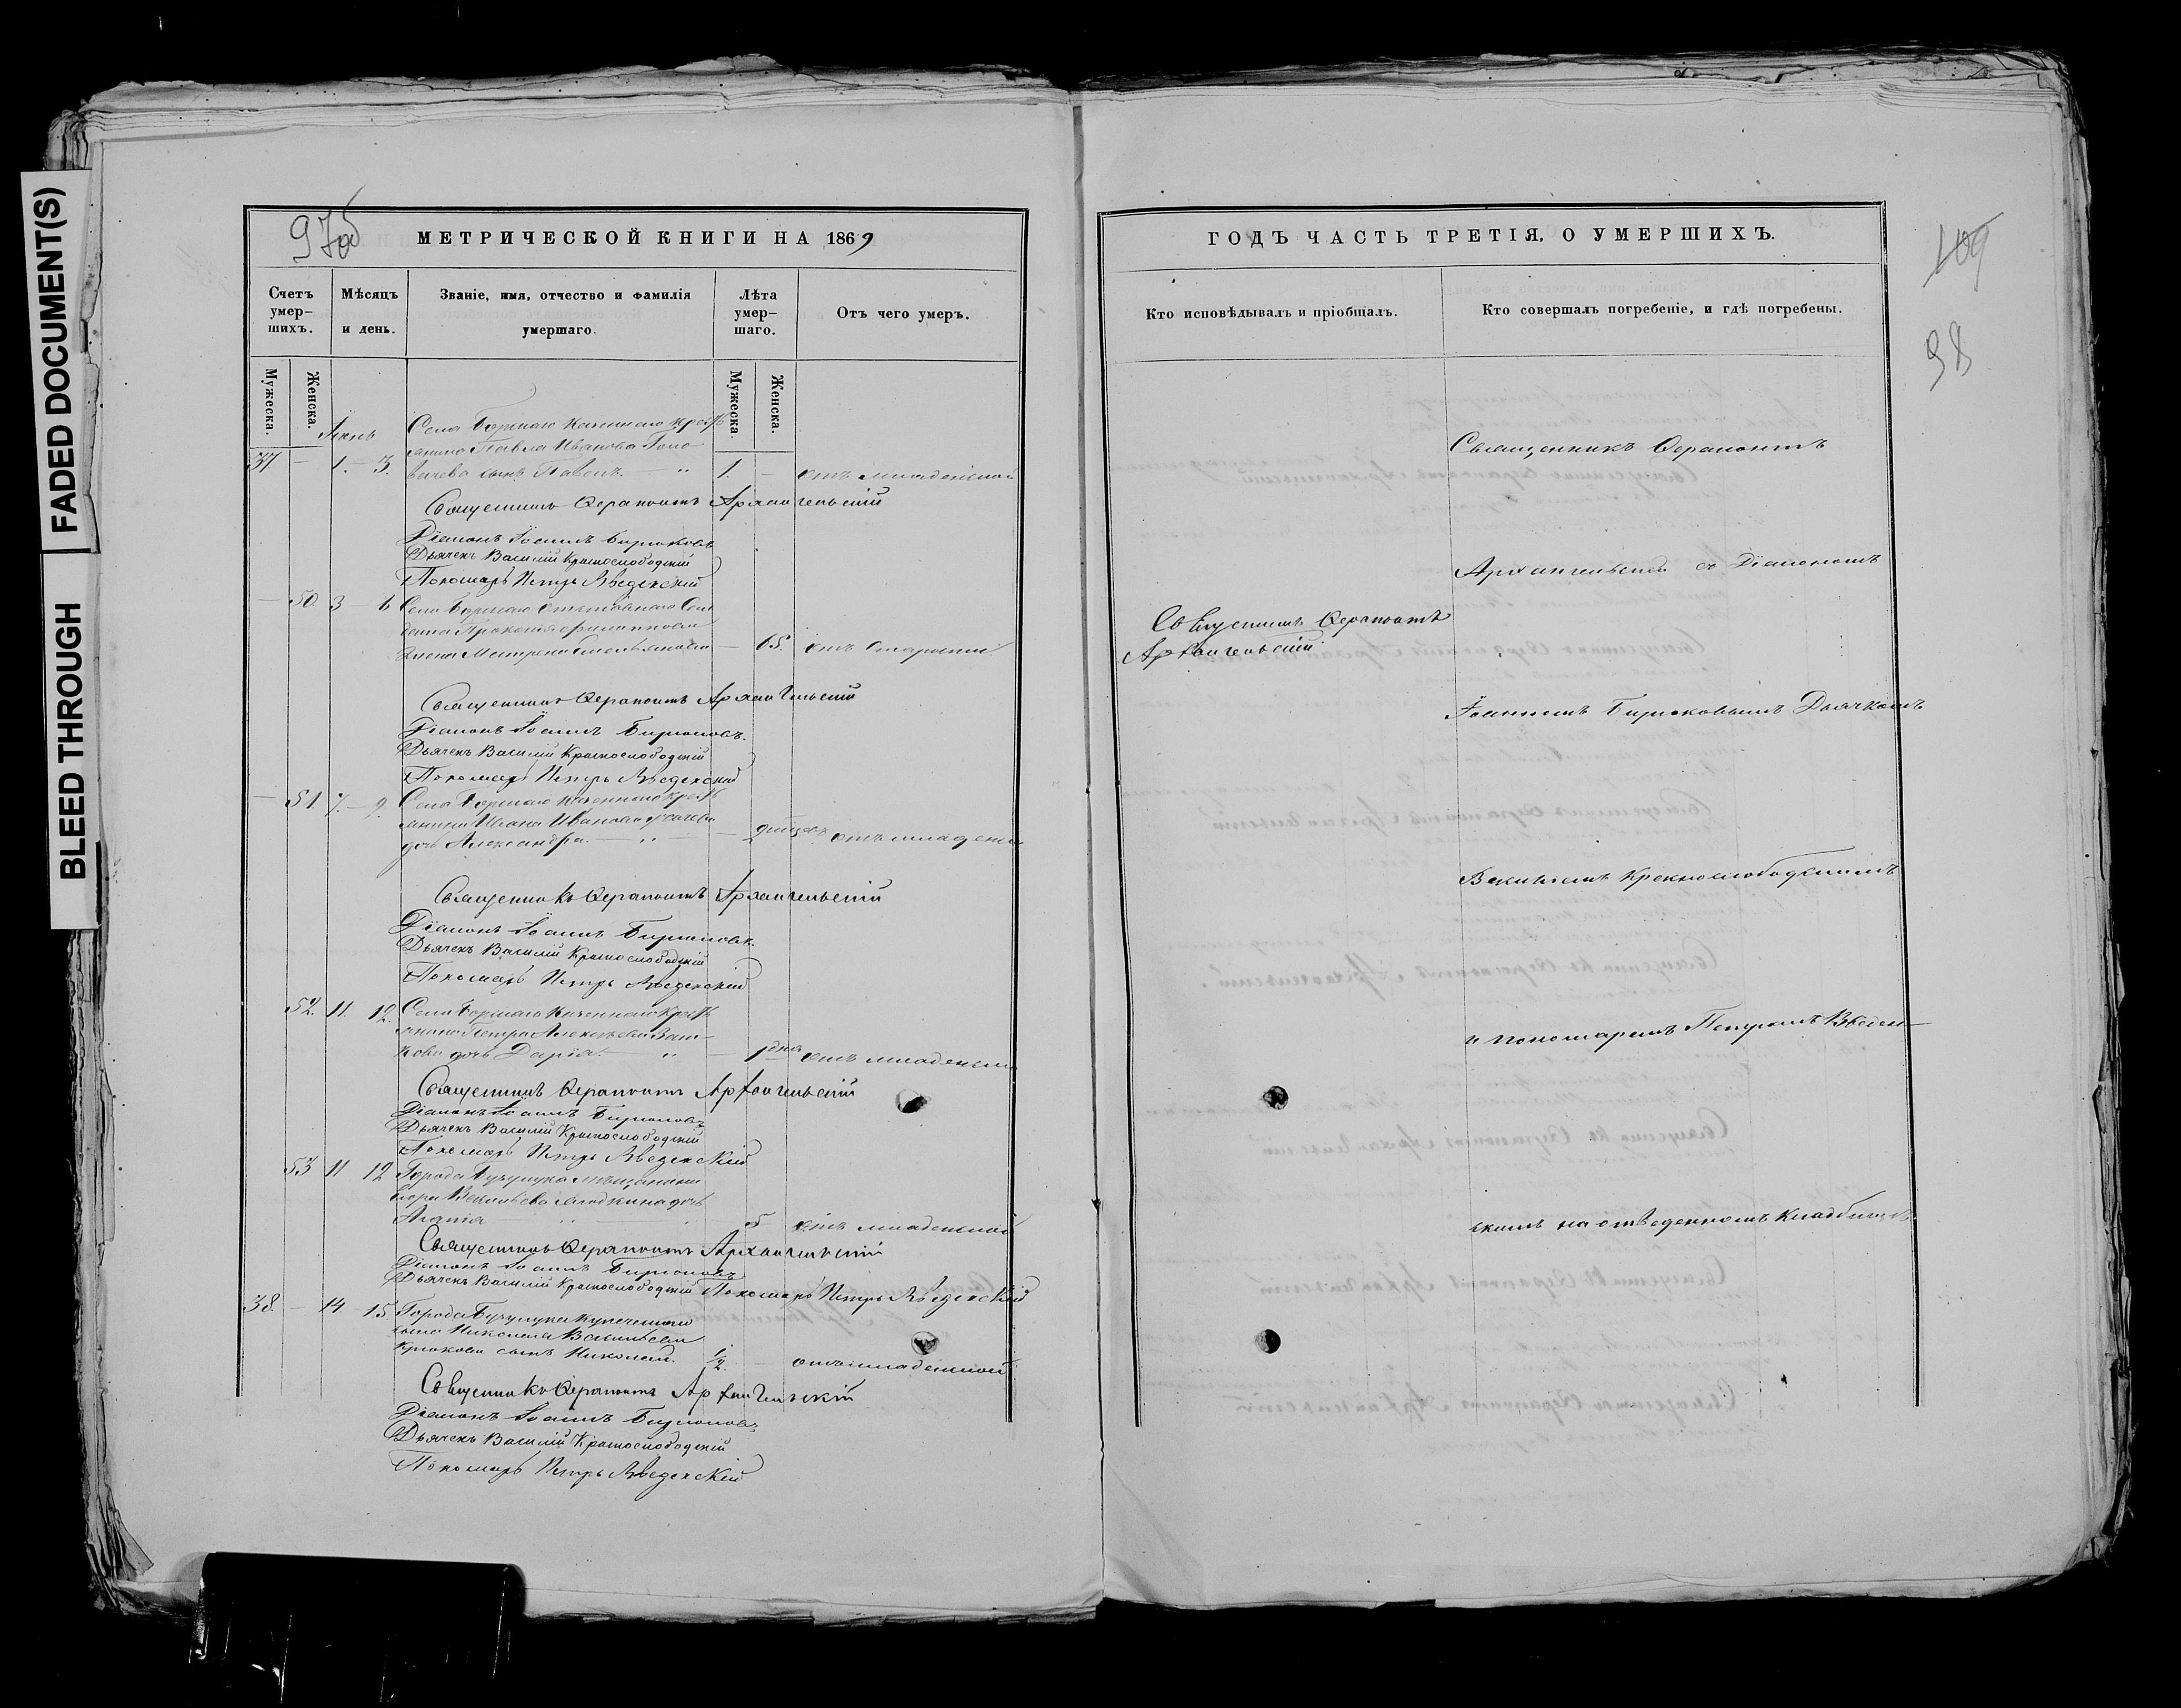 BLEED THROUGH
FADED DOCUMENT(S)
97об
МЕТРИЧЕСКОЙ КНИГИ НА 1869
Счетъ умер-шихъ.
Мѣсяцъ и день.
Званіе, имя, отчество и фамилія умершаго.
Лѣта умер-шаго.
Отъ чего умеръ.
Мужеска.
Женска.
Мужеска.
Женска.
Іюнь
Села Борскаго Казеннаго Крестъ
янина Павла Иванова
37 — 1. — 3. сынъ Павелъ. — " 1. — отъ младенской
Священникъ Ѳерапонтъ Архангельскій
Діаконъ Іоаннъ Бирюковъ
Дьячекъ Василій Краснослободскій
Пономарь Петръ Введенскій
— 50 3 — 6 Села Борскаго Отставнаго Сол
дата Филиппова
Жена Матрена — 65. отъ старости
Священникъ Ѳерапонтъ Архангельскій
Діаконъ Іоаннъ Бирюковъ.
Дьячекъ Василій Краснослободскій
Пономарь Петръ Введенскій
— 51. 7. — 9. Села Борскаго Казеннаго Крестъ
янина Ивана Иванова
дочь Александра. — " — отъ младенч
Священникъ Ѳерапонтъ Архангельскій
Діаконъ Іоаннъ Бирюковъ.
Дьячекъ Василій Краснослободскій
Пономарь Петръ Введенскій
52. 11. 12. Села Борскаго Казеннаго Крестъ
янина Петра Алексѣева
кова дочь Дарья. — " — 1 дня отъ младенской
Священникъ Ѳерапонтъ Архангельскій
Діаконъ Іоаннъ Бирюковъ
Дьячекъ Василій Краснослободскій
Пономарь Петръ Введенскій
53 11 12 Города Бузулука мѣщанина
Егора Васильева дочь
5 отъ младенской
Священникъ Ѳерапонтъ Архангельскій
Діаконъ Іоаннъ Бирюковъ
Дьячекъ Василій Краснослободскій Пономарь Петръ Введенскій
38. — 14 — 15. Города Бузулука Купеческаго
сына Николая Васильева
Крюкова сынъ Николай. 1/2. — отъ младенской
Священникъ Ѳерапонтъ Архангельскій
Діаконъ Іоаннъ Бирюковъ
Дьячекъ Василій Краснослободскій
Пономарь Петръ Введенскій
ГОДЪ ЧАСТЬ ТРЕТІЯ, О УМЕРШИХЪ.
109
98
Кто исповѣдывалъ и пріобщалъ.
Кто совершалъ погребеніе, и гдѣ погребены.
Священникъ Ѳерапонтъ
Архангельскій съ Діакономъ
Священникъ Ѳерапонтъ
Архангельскій
Іоанномъ Бирюковымъ Дьячкомъ
Василіемъ Краснослободскимъ
и пономаремъ Петромъ Введен—
скимъ на отведенномъ Кладбищѣ.